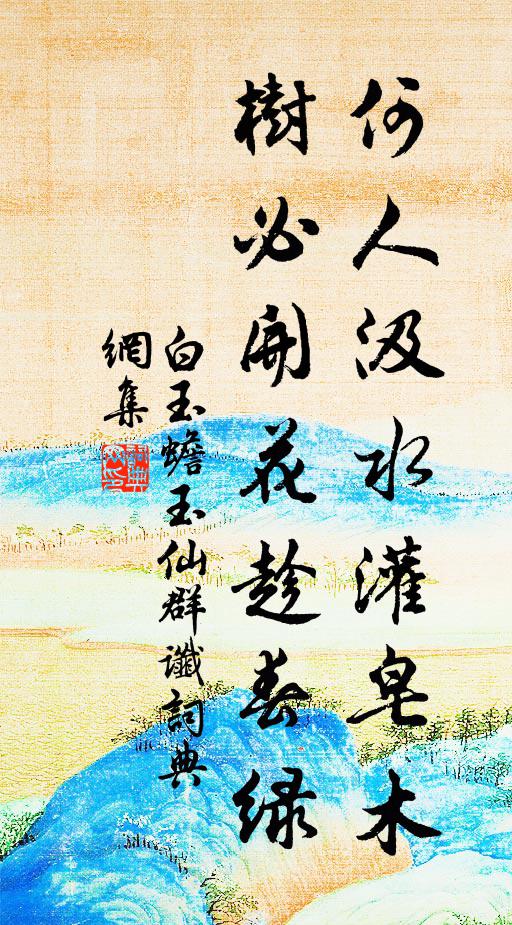 何人汲水灌皂木
樹必開花趁春綠
白玉蟾玉仙群讖詞典
網集